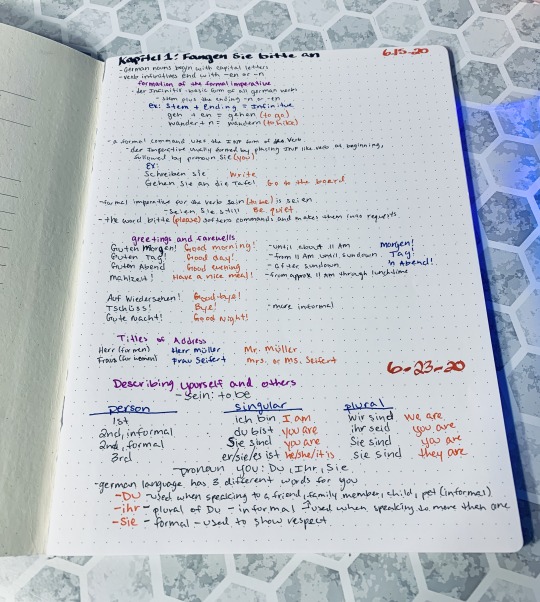 Kapitel 1: Fangen Sie bitte an 6-15-20
-German nouns begin with capital letters
-verb infinitives end with -en or -n
formation of the formal imperative
-der Infinitiv -basic form of all german verbs
-stem plus the ending -n or -en
Ex: Stem + Ending = Infinitive
geh + en = gehen (to go)
wander + n = wandern (to hike)
-a formal command uses the INF form of the verb
-der Imperative usually formed by placing INF like verb at beginning,
followed by pronoun Sie (you)
EX:
Schreiben Sie Write
Gehen Sie an die Tafel Go to the board
-formal imperative for the verb sein (to be) is seien
-Seien Sie still Be quiet
-the word bitte (please) softens commands and makes them into requests
greetings and farewells
Guten Morgen! Good morning! -until about 11 Am Morgen!
Guten Tag! Good day! -from 11 Am until sundown Tag!
Guten Abend Good evening -after sundown n Abend!
Mahlzeit! Have a nice meal! -from approx 11 Am through lunchtime
Auf Wiedersehen! Good-bye!
Tschüss! Bye! -more informal
Gute Nacht! Good Night!
Titles of Address
Herr (for men) Herr Müller Mr. Müller
Frau (for women) Frau Seifert Mrs. or Ms. Seifert
6-23-20
Describing yourself and others
-Sein: to be
person singular plural
1st ich bin I am Wir sind we are
2nd, informal du bist you are ihr seid you are
2nd, formal Sie sind you are Sie sind you are
3rd er/sie/es ist he/she/it is sie sind they are
-pronoun you: Du, Ihr, Sie
-german language has 3 different words for you
-DU -used when speaking to a friend, family member, child, pet (informal)
-ihr -plural of Du -informal -used when speaking to more then one
-Sie -formal -used to show respect